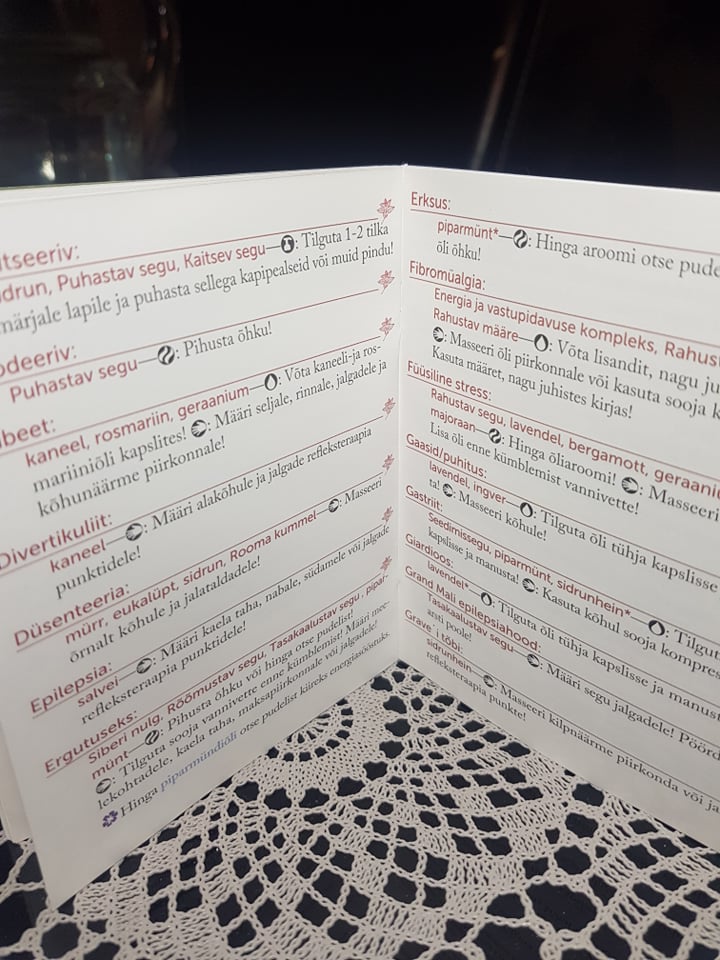 tseeriv:
idrun, Puhastav segu, Kaitsev segu—: Tilguta 1-2 tilka
märjale lapile ja puhasta sellega kapipealseid või muid pindu!
odeeriv:
Puhastav segu—: Pihusta õhku!
abeet:
kaneel, rosmariin, geraanium—: Võta kaneeli-ja ros-
mariiniõli kapslites! : Määri seljale, rinnale, jalgadele ja
kõhunäärme piirkonnale!
Divertikuliit:
kaneel—: Määri alakõhule ja jalgade refleksteraapia
punktidele!
Düsenteeria:
mürr, eukalüpt, sidrun, Rooma kummel—: Masseeri
õrnalt kõhule ja jalataldadele!
Epilepsia:
salvei—: Määri kaela taha, nabale, südamele või jalgade
refleksteraapia punktidele!
Ergutuseks:
Siberi nulg, Rõõmustav segu, Tasakaalustav segu , pipar-
münt—: Pihusta õhku või hinga otse pudelist!
: Tilguta sooja vannivette enne kümblemist! Määri mee-
lekohtadele, kaela taha, maksapiirkonnale või jalgadele!
Hinga piparmündiõli otse pudelist kiireks energiasööstuks.
Erksus:
piparmünt*—: Hinga aroomi otse pude
õli õhku!
Fibromüalgia:
Energia ja vastupidavuse kompleks, Rahust
Rahustav määre—: Võta lisandit, nagu ju
: Masseeri õli piirkonnale või kasuta sooja k
Kasuta määret, nagu juhistes kirjas!
Füüsiline stress:
Rahustav segu, lavendel, bergamott, geraaniu
majoraan—: Hinga õliaroomi! : Masseeri
Lisa õli enne kümblemist vannivette!
Gaasid/puhitus:
lavendel, ingver—: Tilguta õli tühja kapslisse
ta! : Masseeri kõhule!
Gastriit:
Seedimissegu, piparmünt, sidrunhein*—: Tilgut
kapslisse ja manusta! : Kasuta kõhul sooja kompres
Giardioos:
lavendel*—: Tilguta õli tühja kapslisse ja manus
Grand Mali epilepsiahood:
Tasakaalustav segu—: Määri segu jalgadele! Pöörd
arsti poole!
Grave´i tõbi:
sidrunhein—: Masseeri kilpnäärme piirkonda või ja
refleksteraapia punkte!